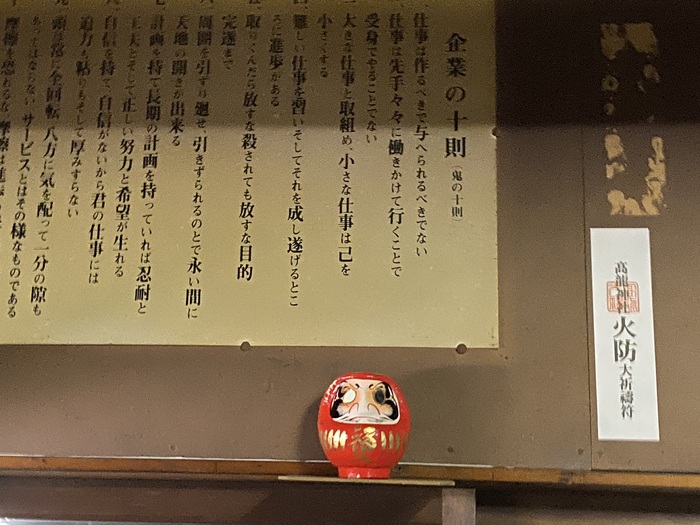 企業の十則 鬼の十則
仕事は作るべきで与へられるべきでない
仕事は先手々々に働きかけて行くことで
受身でやることでない
大きな仕事と取組め、小さな仕事は己を
小さくする
難しい仕事を習いそしてそれを成し遂げるとこ
ろに進歩がある
取りくんだら放すな殺されても放すな目的
完遂まで
周囲を引ずり廻せ、引きずられるのとで永い間に
天地の開きが出来る
計画を持て長期の計画を持っていれば忍耐と
工夫とそして正しい努力と希望が生れる
自信を持て、自信がないから君の仕事には
迫力も粘りもそして厚みすらない
頭は常に全回転、八方に気を配って一分の隙も
あってはならないサービスとはその様なものである
摩擦を恐れるな
高龍神社 火防大祈禱符